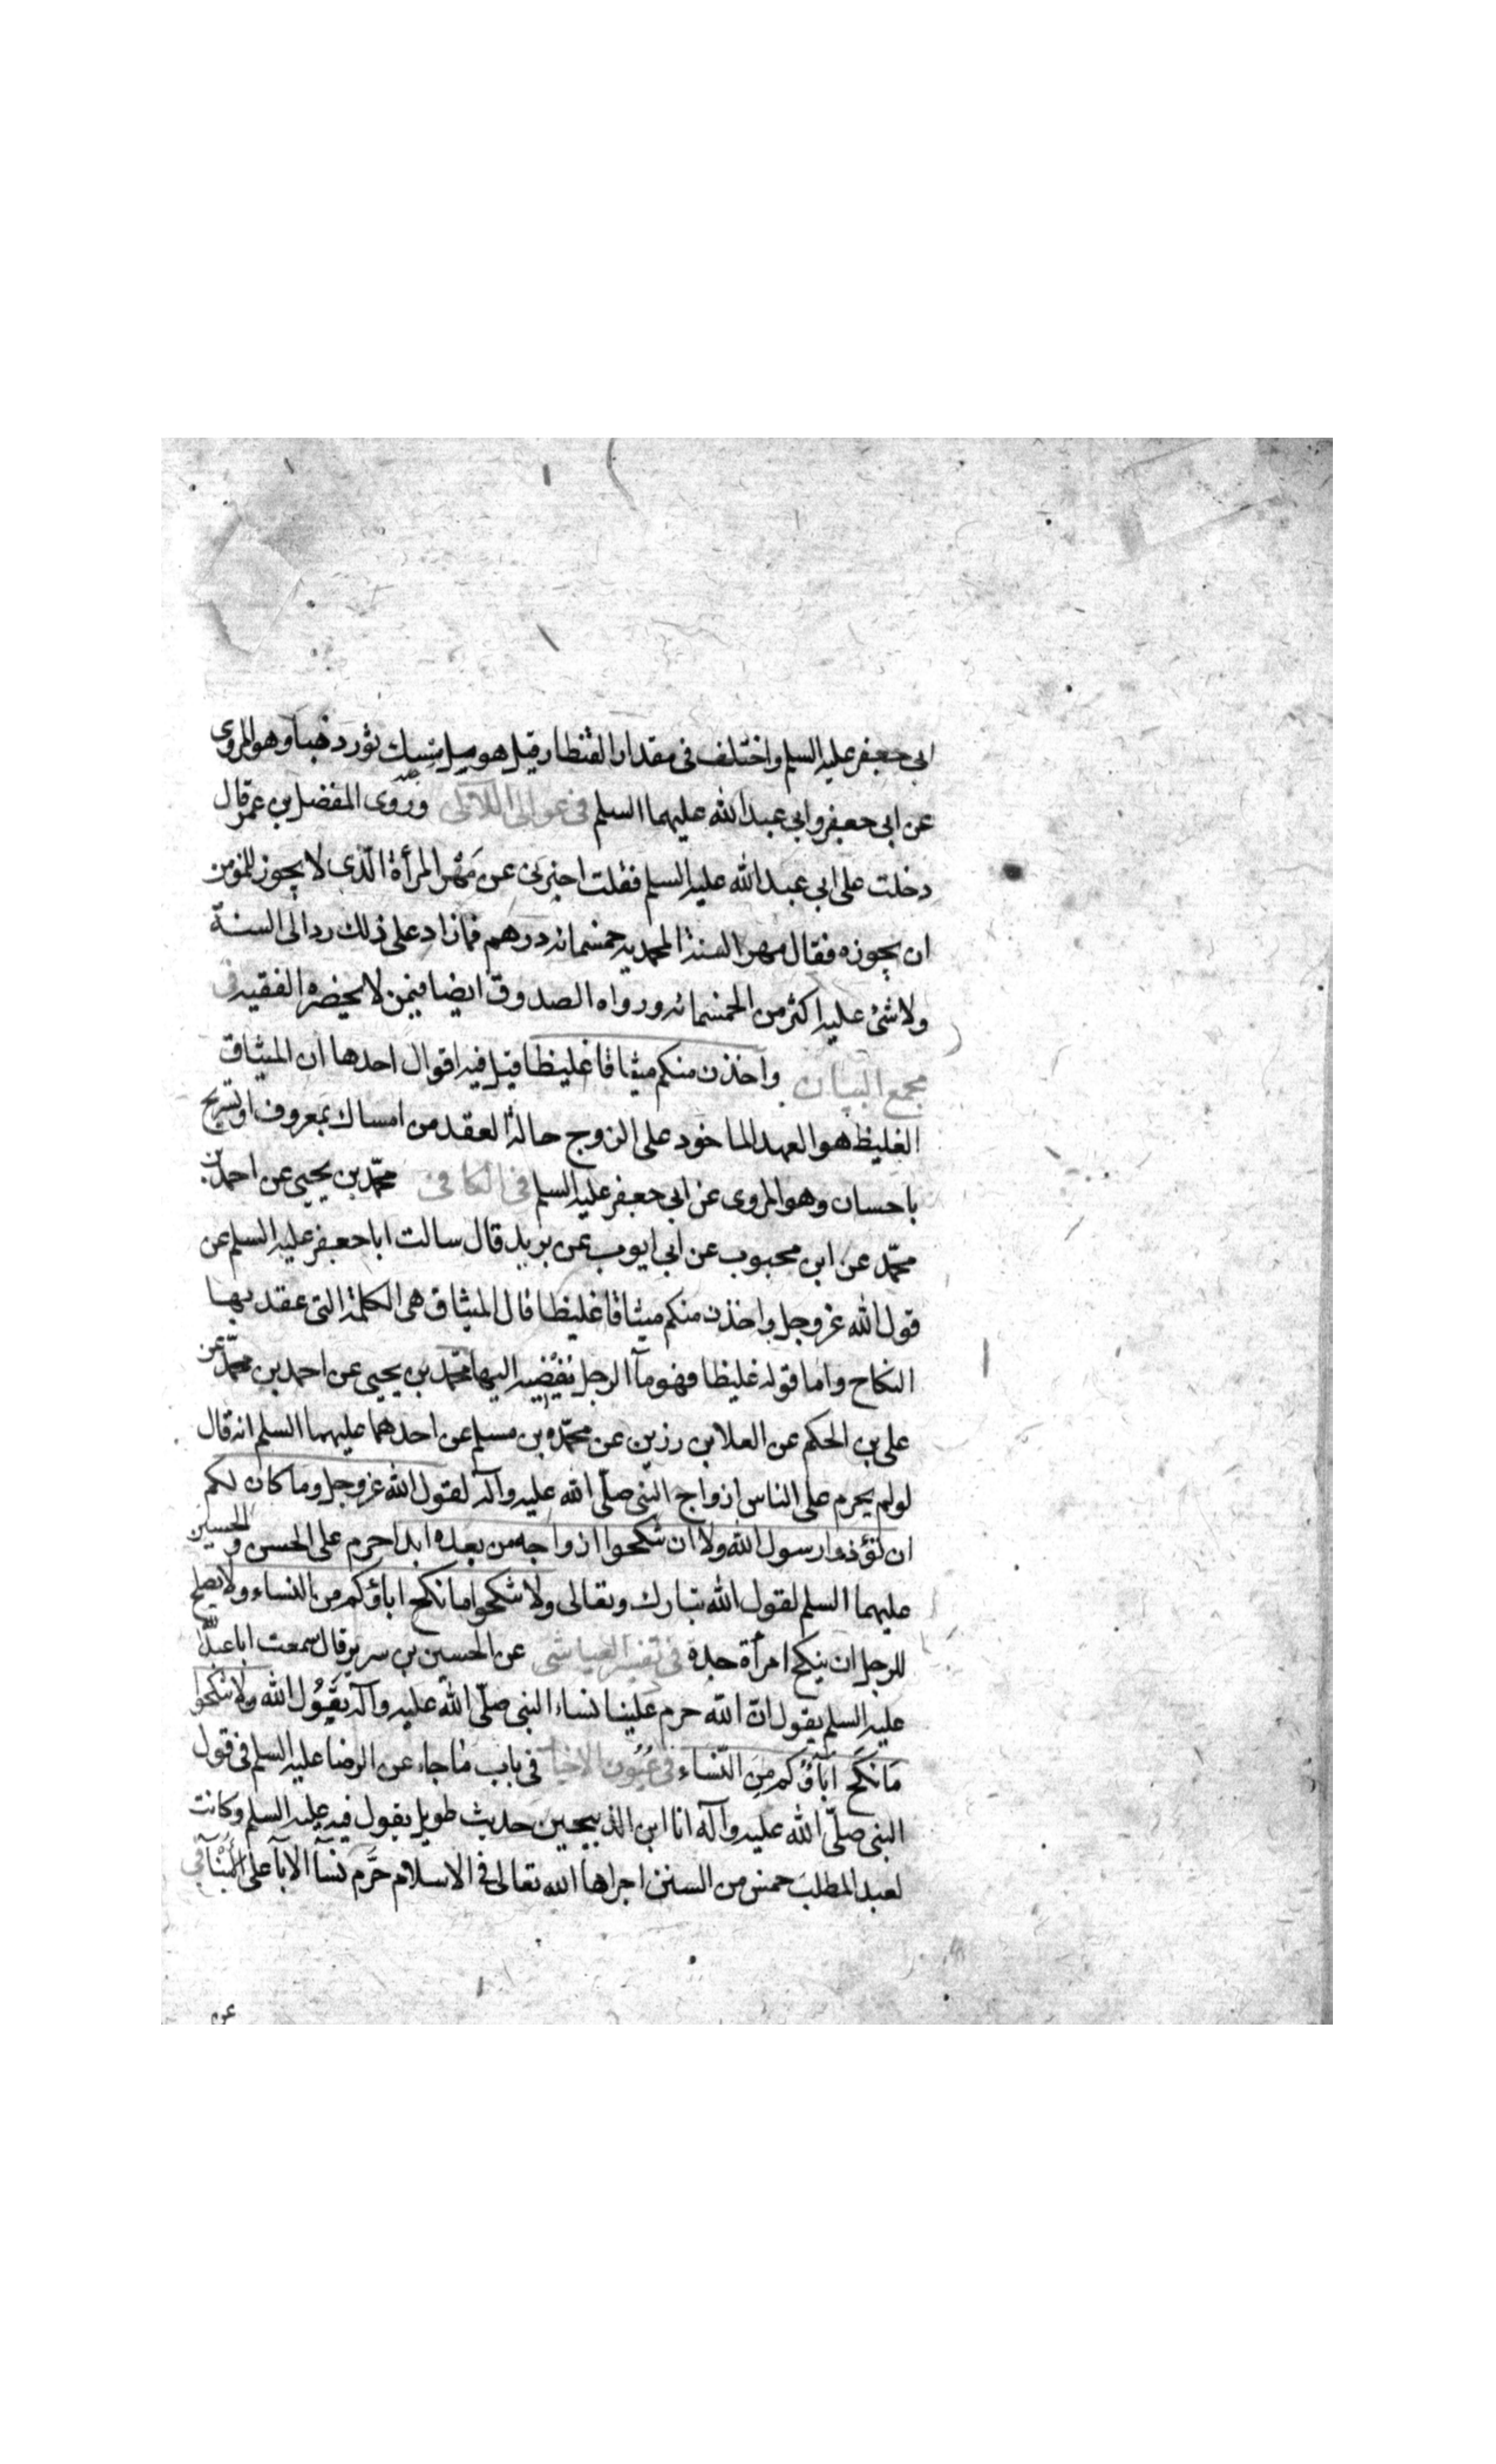 ابى جعفر عليه السلم واختلف فى مقدار القنطار قيل هو ميل مسك ثور ذهبا وهو المروى
عن ابى جعفر وابى عبد الله عليهما السلم فى عوالى اللآلى وروى المفضل بن عمر قال
دخلت على ابى عبد الله عليه السلم فقلت اخبرنى عن مَهْر المرأة الّذى لا يجوز للمؤمن
ان يجوزه فقال مهر السنة المحمدية خمسمائه درهم فما زاد على ذلك رد الى السنة
ولا شئ عليه اكثر من الخمسمائه ورواه الصدوق ايضا فيمن لا يحضره الفقيه فى
مجمع البيان واخذن منكم ميثاقا غليظا قيل فيه اقوال احدها ان الميثاق
الغليظ هو العهد الماخوذ على الزوج حالة العقد من امساك بمعروف او تسريح
باحسان وهو المروى عن ابى جعفر عليه السلم فى الكافى محمّد بن يحيى عن احمد بن
محمّد عن ابن محبوب عن ابى ايوب عن بريد قال سالت ابا جعفر عليه السلم عن
قول الله عز وجل واخذن منكم ميثاقا غليظا قال الميثاق هى الكلمة التى عقد بها
النكاح واما قوله غليظا فهو مآ الرجل يُفْضيه اليها محمّد بن يحيى عن احمد بن محمّد عن
على بن الحكم عن العلا بن رزين عن محمّد بن مسلم عن احدهما عليهما السلم انه قال
لو لم يحرم على الناس ازواج النبى صلّى الله عليه وآله لقول الله عز وجل وما كان لكم
ان تؤذوا رسول الله ولا ان تنكحوا ازواجه من بعده ابدا حرم على الحسن و الحسين
عليهما السلم لقول الله تبارك وتعالى ولا تنكحوا ما نكح اباؤكم من النساء ولا يصلح
للرجل ان ينكح امرأة جدة فى تفسير العياشى عن الحسين بن سرير قال سمعت ابا عبد الله
عليه السلم يقول انّ الله حرم علينا نساء النبى صلّى الله عليه وآله يَقُولُ الله ولا تنكحوا
مَا نَكَحَ اَبَآؤكُم مِنَ النّسَاء فى عُيُون الاخبا فى باب مَا جاء عن الرضا عليه السلم فى قول
النبى صلّى الله عليه وآله انا ابن الذبيحين حديث طويل يقول فيه عليه السلم وكانت
لعبد المطلب خمس من السنن اجراها الله تعالى فى الاسلام حَرَّم نسآ الابآ على الابنآ فى